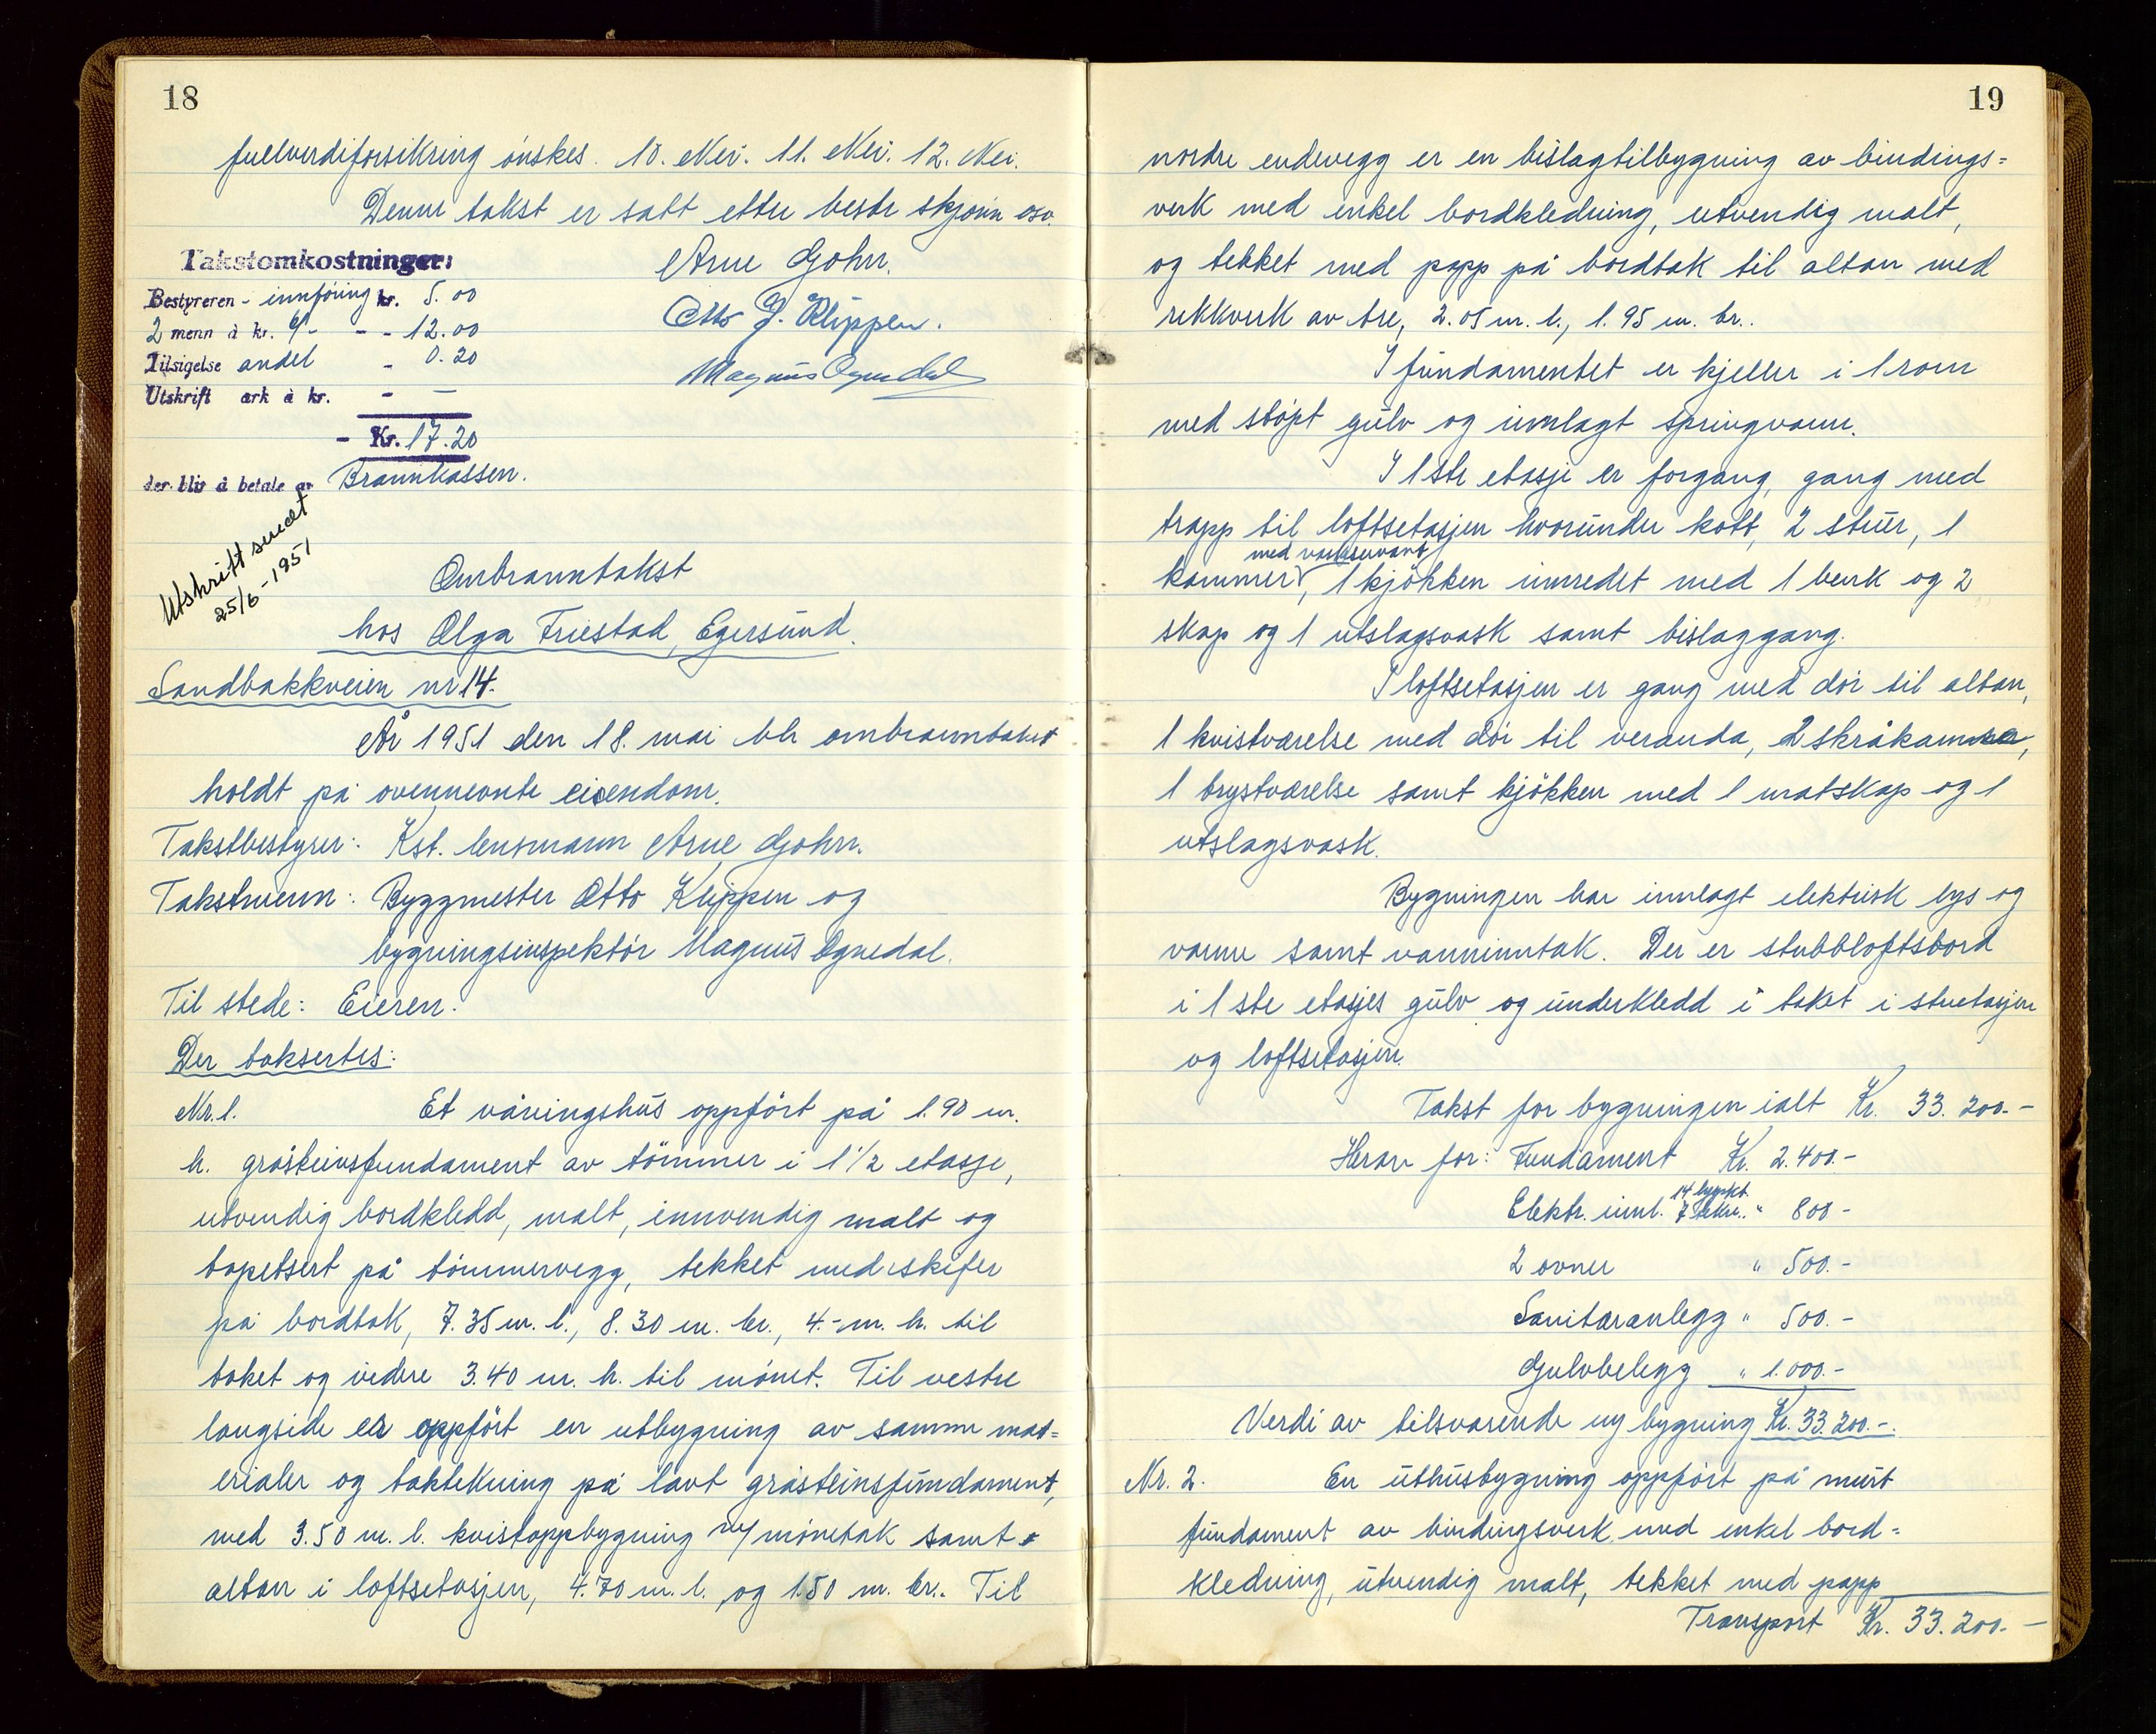 18
fullverdiforsikring ønskes. 10. Nei. 11. Nei. 12. Nei.
Denne takst er satt etter beste skjønn osv.
Takstomkostninger:
Bestyreren - innføring kr. 5.00
2 menn à kr. 6/- - - 12.00
Tilsigelse andel - 0.20
Utskrift ark à kr. - —
- Kr. 17.20
der blir å betale av Brannkassen.
Arne Gohn.
Otto J. Klippen.
Magnus Ognedal
Utskrift sendt
25/6-1951
Ombranntakst
hos Olga Friestad, Egersund.
Sandbakkveien nr 14.
År 1951 den 18. mai ble ombranntakst
holdt på ovennevnte eiendom.
Takstbestyrer: Kst. lensmann Arne Gohn.
Takstmenn: Byggmester Otto Klippen og
bygningsinspektør Magnus Ognedal.
Til stede: Eieren.
Der taksertes:
Nr. 1. Et våningshus oppført på 1.90 m.
h. gråsteinsfundament av tömmer i 1 1/2 etasje,
utvendig bordkledd, malt, innvendig malt og
tapetsert på tömmervegg, tekket med skifer
på bordtak, 7.35 m. l., 8.30 m. br., 4.- m. h. til
taket og videre 3.40 m. h. til mönet. Til vestre
langside er oppført en utbygning av samme mat=
erialer og taktekning på lavt gråsteinsfundament,
med 3.50 m. l. kvistoppbygning m/ mönetak samt
altan i loftsetasjen, 4.70 m. l. og 1.50 m. br.. Til
19
nordre endevegg er en bislagtilbygning av bindings=
verk med enkel bordkledning, utvendig malt,
og tekket med papp på bordtak til altan med
rekkverk av tre, 2.05 m. l., 1.95 m. br..
I fundamentet er kjeller i 1 rom
med stöpt gulv og innlagt springvann.
I 1ste etasje er forgang, gang med
trapp til loftsetasjen hvorunder kott, 2 stuer, 1
med vaskeservant
kammer, 1 kjökken innredet med 1 benk og 2
skap og 1 utslagsvask samt bislaggang.
I loftsetasjen er gang med dör til altan,
1 kvistværelse med dör til veranda, 2 skråkammer,
1 brystværelse samt kjökken med 1 matskap og 1
utslagsvask.
Bygningen har innlagt elektrisk lys og
varme samt vanninntak. Der er stubbloftsbord
i 1ste etasjes gulv og underkledd i taket i stuetasjen
og loftsetasjen.
Takst for bygningen ialt Kr. 33.200.-
Herav for: Fundament Kr. 2.400.-
14 lyspkt.
Elektr. innl. 7 stikk. " 800 -
2 ovner " 500.-
Sanitæranlegg " 500.-
Gulvbelegg " 1.000.-
Verdi av tilsvarende ny bygning Kr. 33.200.-.
Nr. 2. En uthusbygning oppfört på murt
fundament av bindingsverk med enkel bord=
kledning, utvendig malt, tekket med papp
Transport Kr. 33.200.-